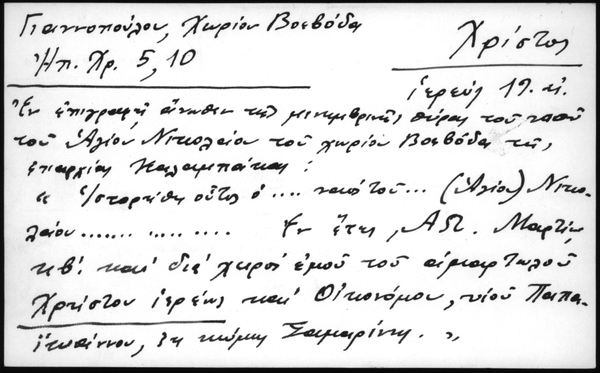 Γιαννοπούλου, Χωρίον Βοεβόδα
Ἠπ. Χρ. 5, 10
Χρίστος
ἱερεύς 19. αἰ.
Ἐν ἐπιγραφῇ ἄνωθεν τῆς μεσημβρινῆς θύρας τοῦ ναοῦ
τοῦ Ἁγίου Νικολάου τοῦ χωρίου Βοεβόδα τῆς
ἐπαρχίας Καλαμπάκας :
" Ἱστορήθη οὗτος ὁ .... ναός τοῦ ... (Ἁγίου) Νικο-
λάου ....... .... .... Ἐν ἔτει, ΑΩ. Μαρτίῳ
κβ΄. καί διά χειρός ἐμοῦ τοῦ ἁμαρτωλοῦ
Χρίστου ἱερέως καί Οἰκονόμου, υἱοῦ Παπα-
ϊωάννου, ἐκ κώμης Σαμαρίνης. "